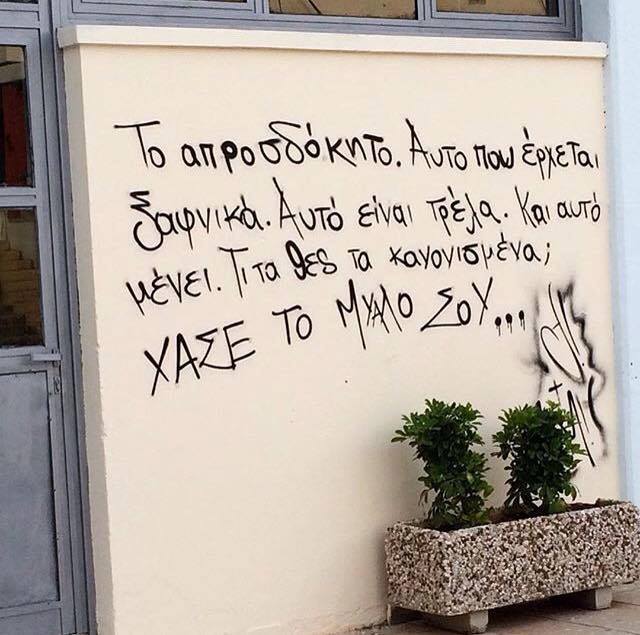 Το απροσδόκητο. Αυτο που έρχεται
ξαφνικά. Αυτό είναι τρέλα. Και αυτό
μένει. Τι τα θες τα κανονισμένα;
ΧΑΣΕ ΤΟ ΜΥΑΛΟ ΣΟΥ...